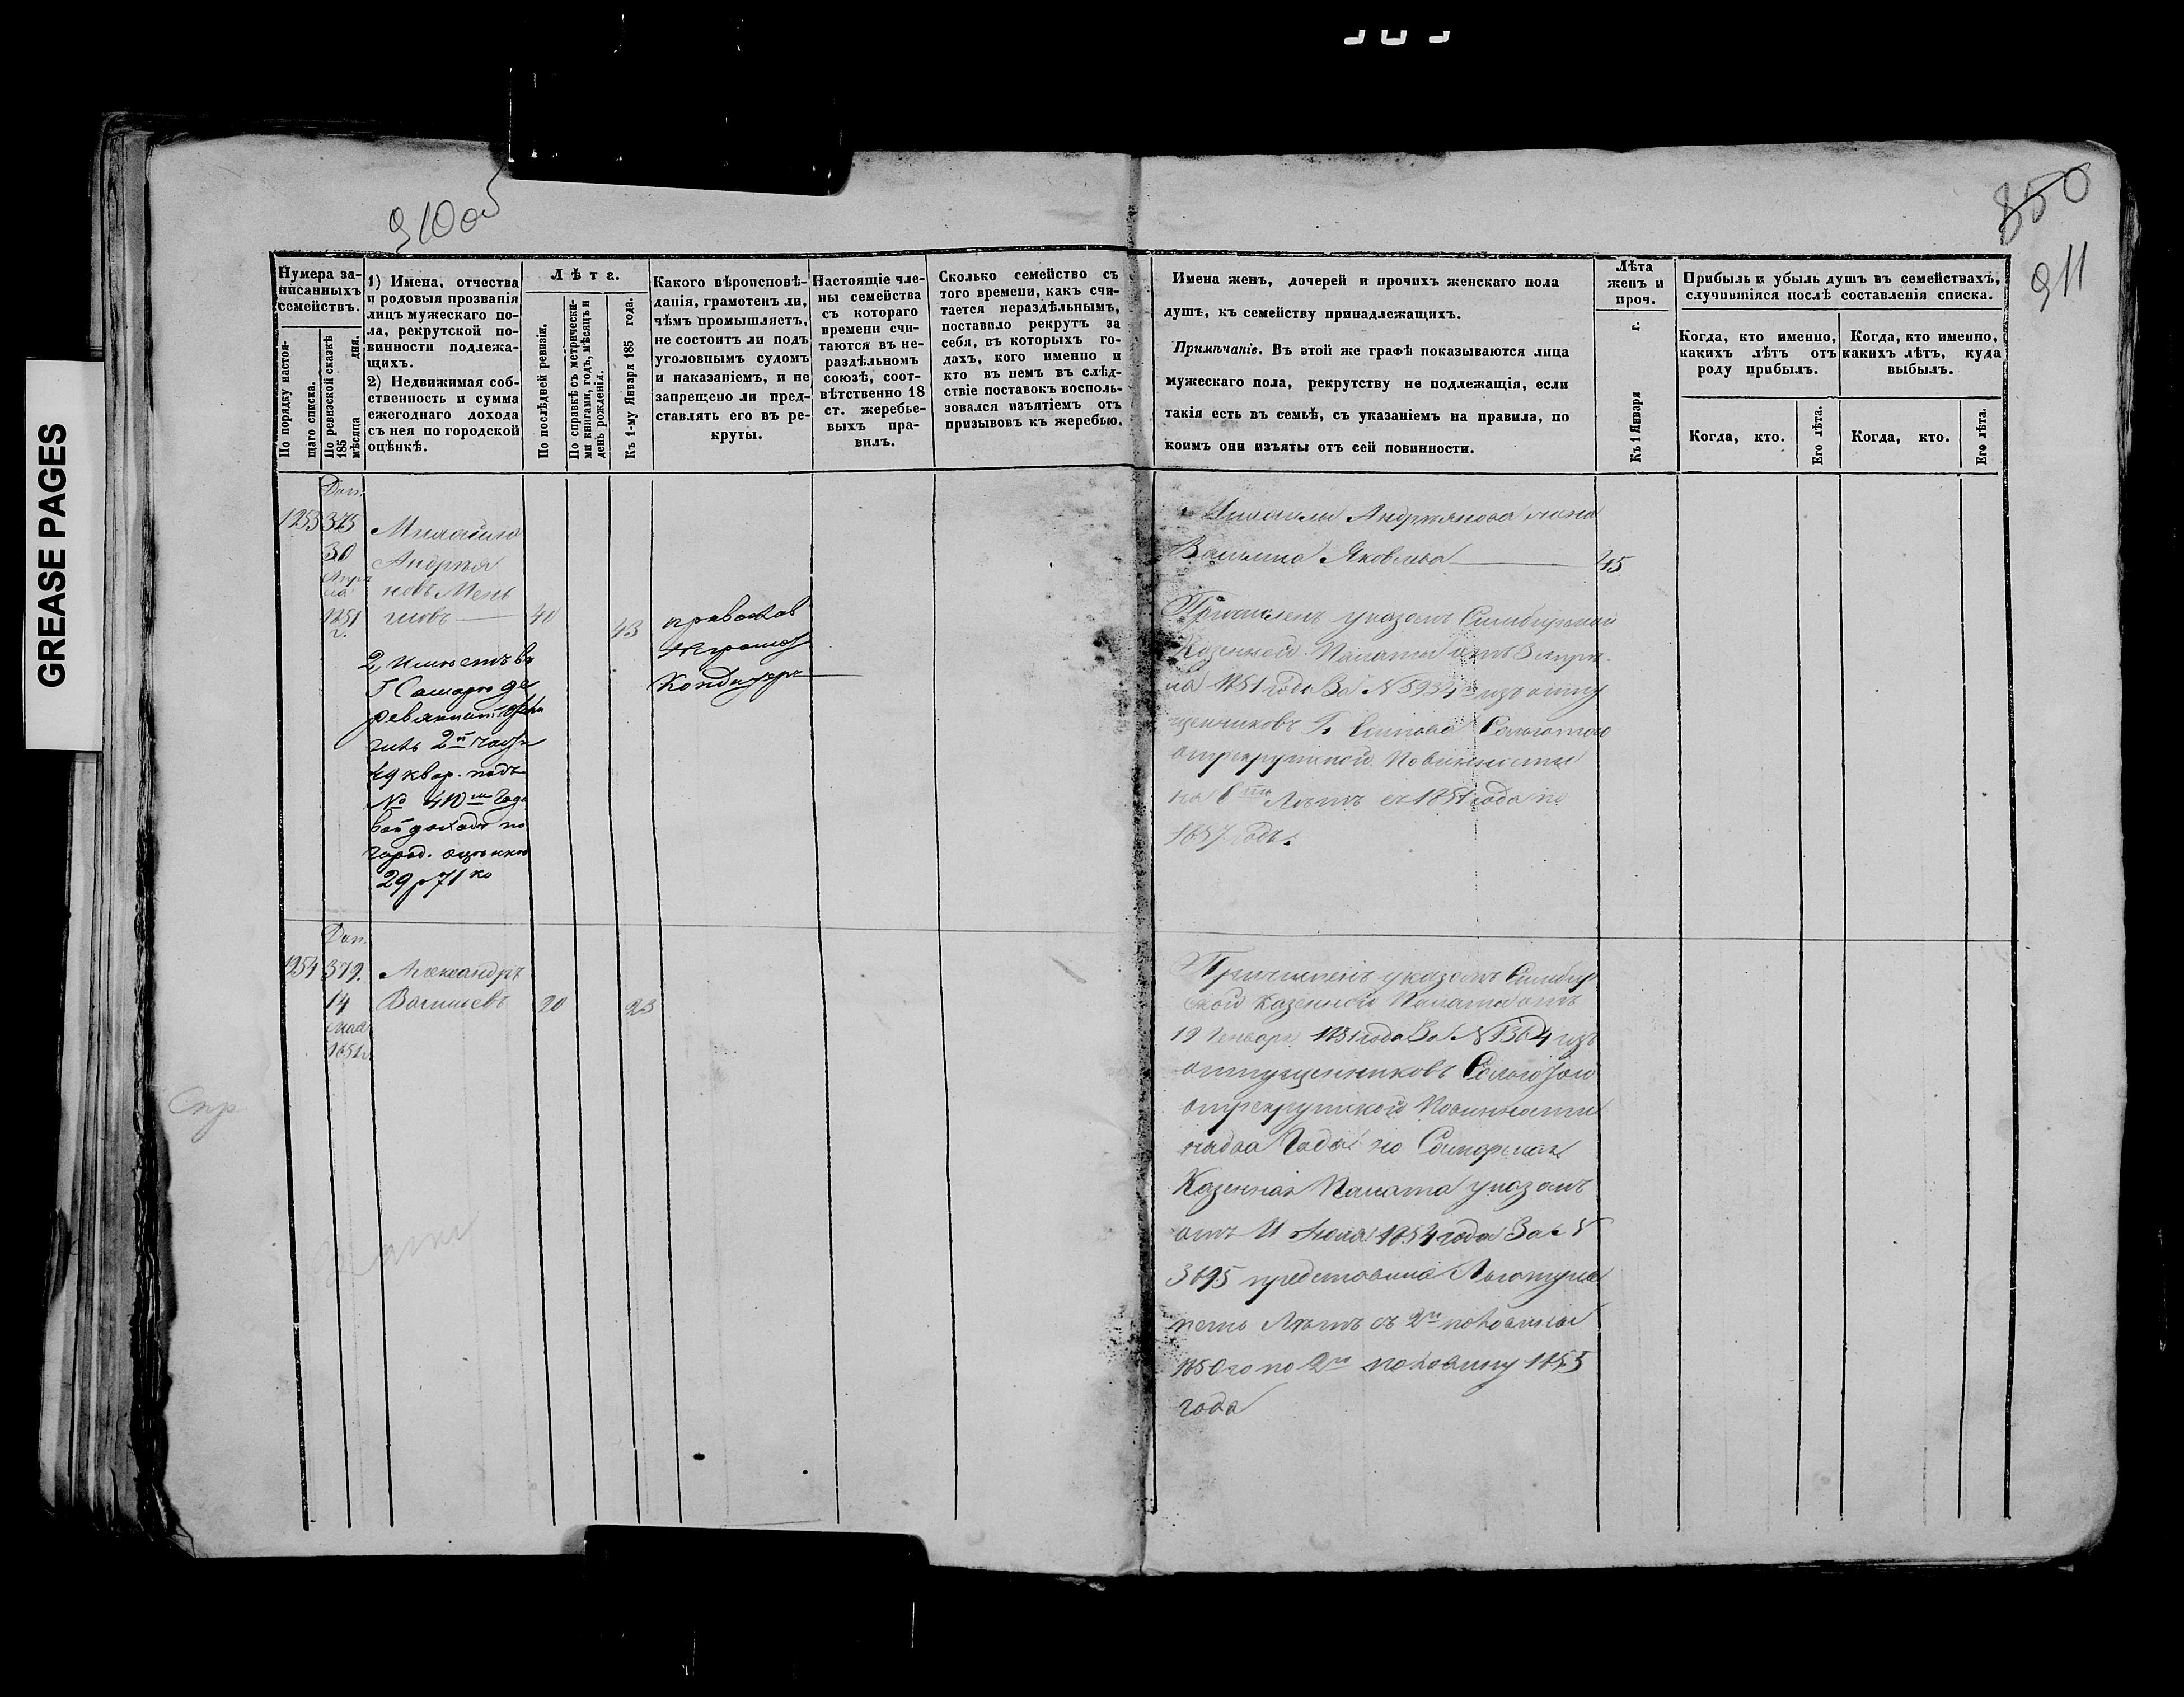 GREASE PAGES
910 об
850
911
Нумера за-
писанныхъ
семействъ.
По порядку настоя-
щаго списка.
По ревизской сказкѣ
185
мѣсяца дня.
1) Имена, отчества
и родовыя прозванія
лицъ мужескаго по-
ла, рекрутской по-
винности подлежа-
щихъ.
2) Недвижимая соб-
ственность и сумма
ежегоднаго дохода
съ нея по городской
оцѣнкѣ.
Лѣта.
По послѣдней ревизіи.
По справкѣ съ метрически-
ми книгами, годъ, мѣсяцъ и
день рожденія.
Къ 1-му Января 185 года.
Какого вѣроисповѣ-
данія, грамотенъ ли,
чѣмъ промышляетъ,
не состоитъ ли подъ
уголовнымъ судомъ
и наказаніемъ, и не
запрещено ли пред-
ставлять его въ ре-
круты.
Настоящіе чле-
ны семейства
съ котораго
времени счи-
таются въ не-
раздѣльномъ
союзѣ, соот-
вѣтственно 18
ст. жеребье-
выхъ пра-
вилъ.
Сколько семейство съ
того времени, какъ счи-
тается нераздѣльнымъ,
поставило рекрутъ за
себя, въ которыхъ го-
дахъ, кого именно и
кто въ немъ въ слѣд-
ствіе поставокъ восполь-
зовался изъятіемъ отъ
призывовъ къ жеребью.
Имена женъ, дочерей и прочихъ женскаго пола
душъ, къ семейству принадлежащихъ.
Примѣчаніе. Въ этой же графѣ показываются лица
мужескаго пола, рекрутству не подлежащія, если
такія есть въ семьѣ, съ указаніемъ на правила, по
коимъ они изъяты отъ сей повинности.
Лѣта
женъ и
проч.
Къ 1 Января г.
Прибыль и убыль душъ въ семействахъ,
случившіяся послѣ составленія списка.
Когда, кто именно,
какихъ лѣтъ отъ
роду прибылъ.
Когда, кто именно,
какихъ лѣтъ, куда
выбылъ.
Когда, кто.
Его лѣта.
Когда, кто.
Его лѣта.
Доп.
1253 375
30
Апре
ля
1851
г.
Михаила
Андрея
новъ Мень
шовъ 40 43
православ
неграмот
Кондитеръ
2, имѣетъ въ
Г Самарѣ де
ревянный
2й части
49 квар. подъ
№ 410 годо
вой доходъ по
город. оцѣнкѣ
29 р 71 ко
Андреянова жена
Яковлева 45
Причисленъ указомъ Симбирской
Казенной Палаты отъ 3 апре
ля 1851 года За № 5934 изъ отпу
щенниковъ Г. съ льготою
отрекрутской Повинности
на 6 Лѣтъ съ 1851 года по
1857 годъ.
Доп.
1254 379. Александръ
14 Васильевъ 20 23
мая
1851г.
Причисленъ указомъ Симбир
ской Казенной Палаты отъ
19 Генваря 1851 года За № 1364 изъ
отпущенниковъ Сльготою
отрекрутской Повинности
надва Года но Самарская
Казенная Палата указомъ
отъ 11 Июля 1854 года За №
3695 предоставила Льготу на
пять Лѣтъ съ 2й половины
1850 го по 2ю половину 1855
года
Спр